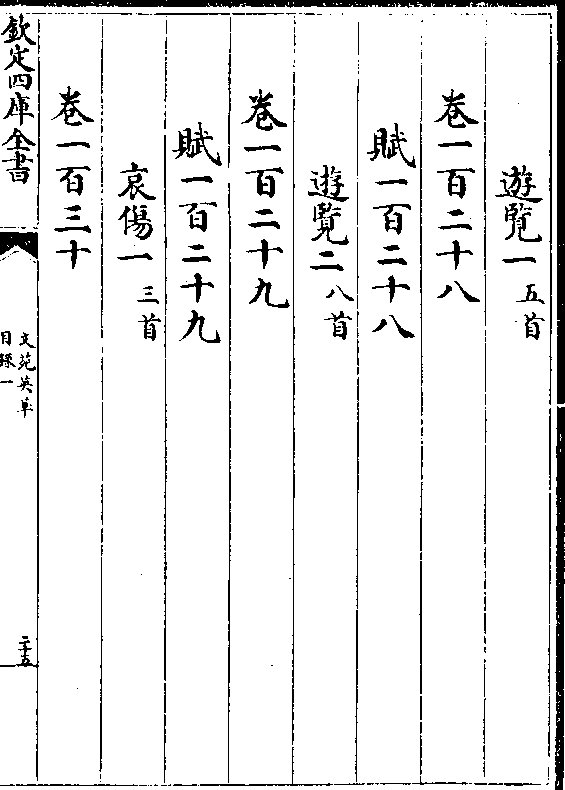 遊覽一五首
卷一百二十八
賦一百二十八
遊覽二八首
卷一百二十九
賦一百二十九
哀傷一三首
卷一百三十
欽定四庫全書
文苑英華
目録一
二十五